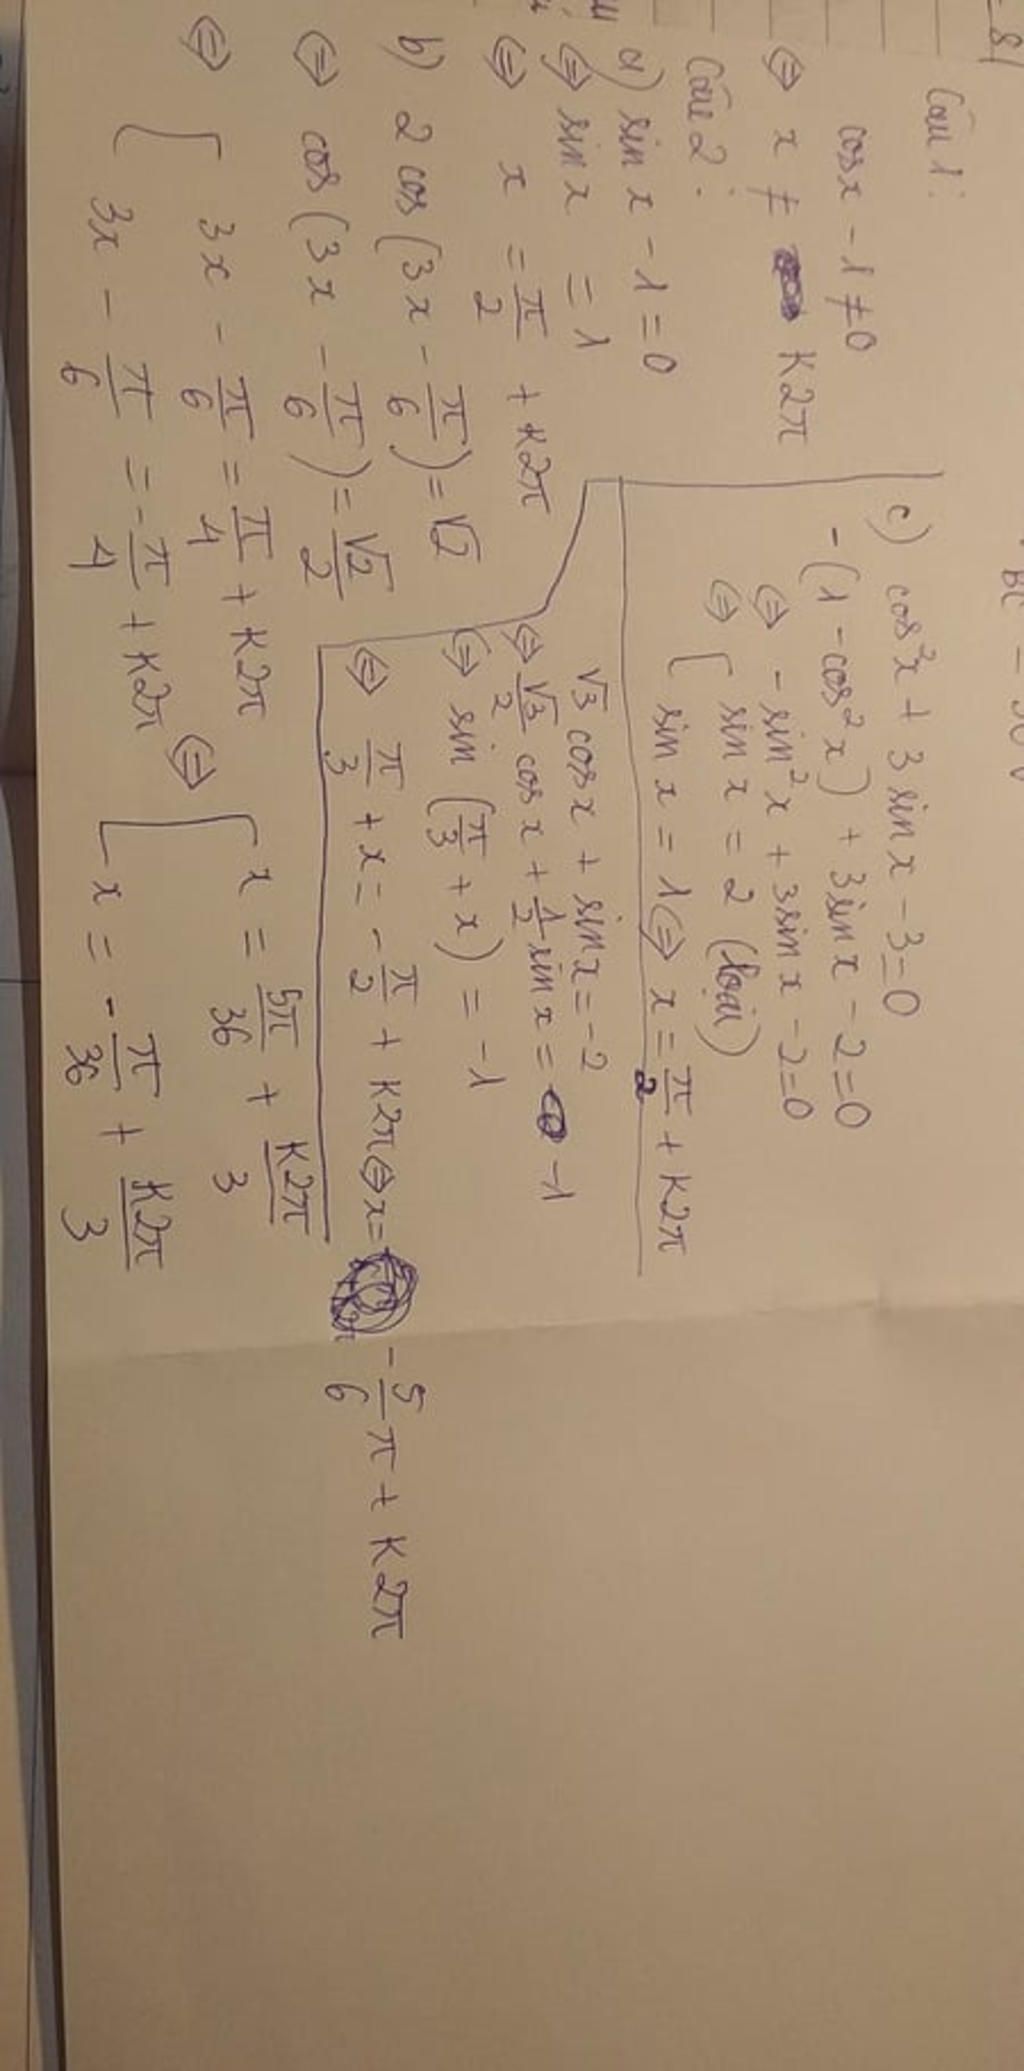 Câu 1:
cosx - 1 ≠ 0
⇔ x ≠ K2π
Câu 2:
a) sin x - 1 = 0
⇔ sin x = 1
⇔ x = π/2 + K2π
b) 2 cos (3x - π/6) = √2
⇔ cos (3x - π/6) = √2/2
⇔ [ 3x - π/6 = π/4 + K2π
3x - π/6 = -π/4 + K2π
⇔ [ x = 5π/36 + K2π/3
x = -π/36 + K2π/3
c) cos²x + 3 sin x - 3 = 0
-(1 - cos²x) + 3sin x - 2 = 0
⇔ - sin²x + 3sin x - 2 = 0
⇔ [ sin x = 2 (loại)
sin x = 1 ⇔ x = π/2 + K2π
√3 cos x + sin x = -2
⇔ √3/2 cos x + 1/2 sin x = -1
⇔ sin (π/3 + x) = -1
⇔ π/3 + x = -π/2 + K2π ⇔ x = -5/6 π + K2π